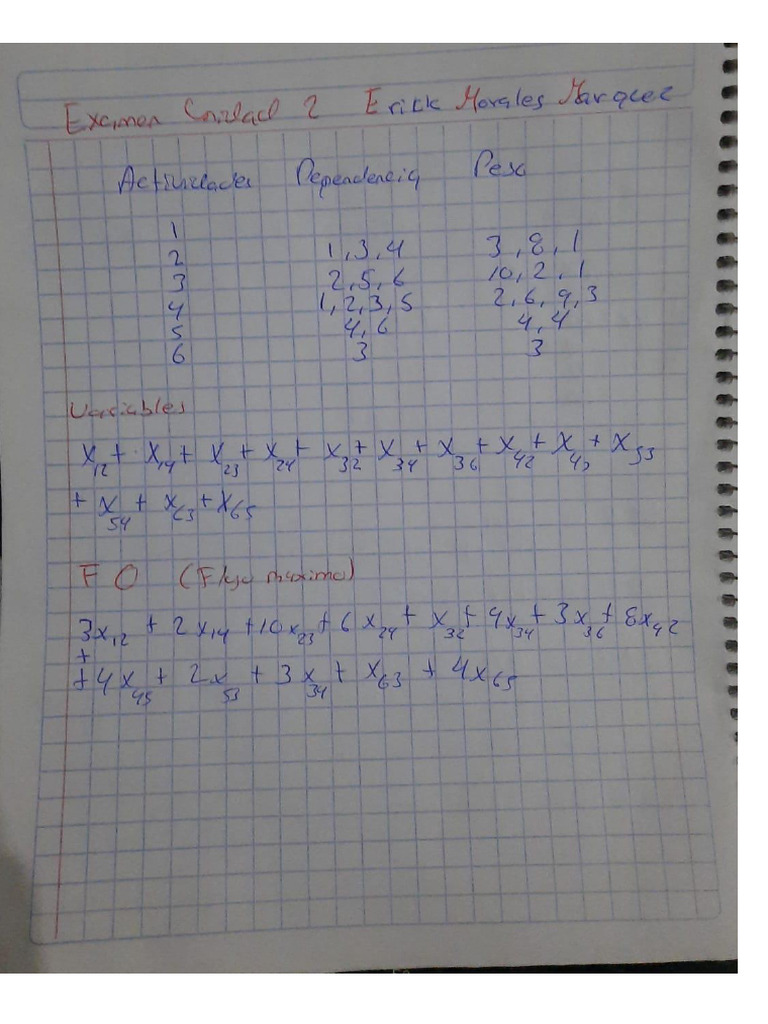 Examen Unidad 2 Erick Morales Marquez
Actividades Dependencia Peso
1
2 1,3,4 3,8,1
3 2,5,6 10,2,1
4 1,2,3,5 2,6,9,3
5 4,6 4,4
6 3 3
Variables
x12 + x14 + x23 + x24 + x32 + x34 + x36 + x42 + x45 + x53
+ x54 + x63 + x65
F O (Flujo maximo)
3x12 + 2x14 + 10x23 + 6x24 + x32 + 9x34 + 3x36 + 8x42
+
+ 4x45 + 2x53 + 3x34 + x63 + 4x65